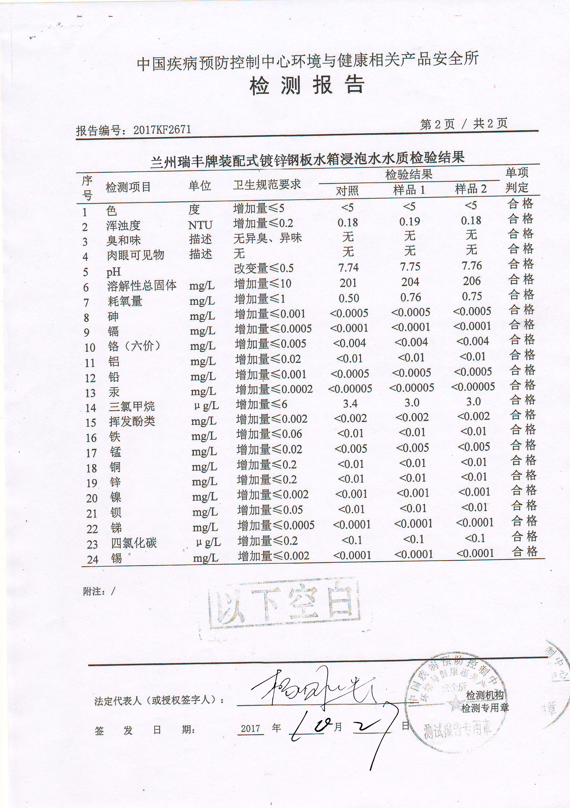 中国疾病预防控制中心环境与健康相关产品安全所
检测报告
报告编号：2017KF2671 第2页 / 共2页
兰州瑞丰牌装配式镀锌钢板水箱浸泡水水质检验结果
序号 检测项目 单位 卫生规范要求 检验结果 单项判定
对照 样品1 样品2
1 色 度 增加量≤5 <5 <5 <5 合格
2 浑浊度 NTU 增加量≤0.2 0.18 0.19 0.18 合格
3 臭和味 描述 无异臭、异味 无 无 无 合格
4 肉眼可见物 描述 无 无 无 无 合格
5 pH 改变量≤0.5 7.74 7.75 7.76 合格
6 溶解性总固体 mg/L 增加量≤10 201 204 206 合格
7 耗氧量 mg/L 增加量≤1 0.50 0.76 0.75 合格
8 砷 mg/L 增加量≤0.001 <0.0005 <0.0005 <0.0005 合格
9 镉 mg/L 增加量≤0.0005 <0.0001 <0.0001 <0.0001 合格
10 铬（六价） mg/L 增加量≤0.005 <0.004 <0.004 <0.004 合格
11 铝 mg/L 增加量≤0.02 <0.01 <0.01 <0.01 合格
12 铅 mg/L 增加量≤0.001 <0.0005 <0.0005 <0.0005 合格
13 汞 mg/L 增加量≤0.0002 <0.00005 <0.00005 <0.00005 合格
14 三氯甲烷 μg/L 增加量≤6 3.4 3.0 3.0 合格
15 挥发酚类 mg/L 增加量≤0.002 <0.002 <0.002 <0.002 合格
16 铁 mg/L 增加量≤0.06 <0.01 <0.01 <0.01 合格
17 锰 mg/L 增加量≤0.02 <0.005 <0.005 <0.005 合格
18 铜 mg/L 增加量≤0.2 <0.01 <0.01 <0.01 合格
19 锌 mg/L 增加量≤0.2 <0.01 <0.01 <0.01 合格
20 镍 mg/L 增加量≤0.002 <0.001 <0.001 <0.001 合格
21 钡 mg/L 增加量≤0.05 <0.01 <0.01 <0.01 合格
22 锑 mg/L 增加量≤0.0005 <0.0001 <0.0001 <0.0001 合格
23 四氯化碳 μg/L 增加量≤0.2 <0.1 <0.1 <0.1 合格
24 锡 mg/L 增加量≤0.002 <0.0001 <0.0001 <0.0001 合格
附注：/
以下空白
法定代表人（或授权签字人）： 检测机构
检测专用章
签发日期： 2017 年 10 月 27 日
测试报告专用章